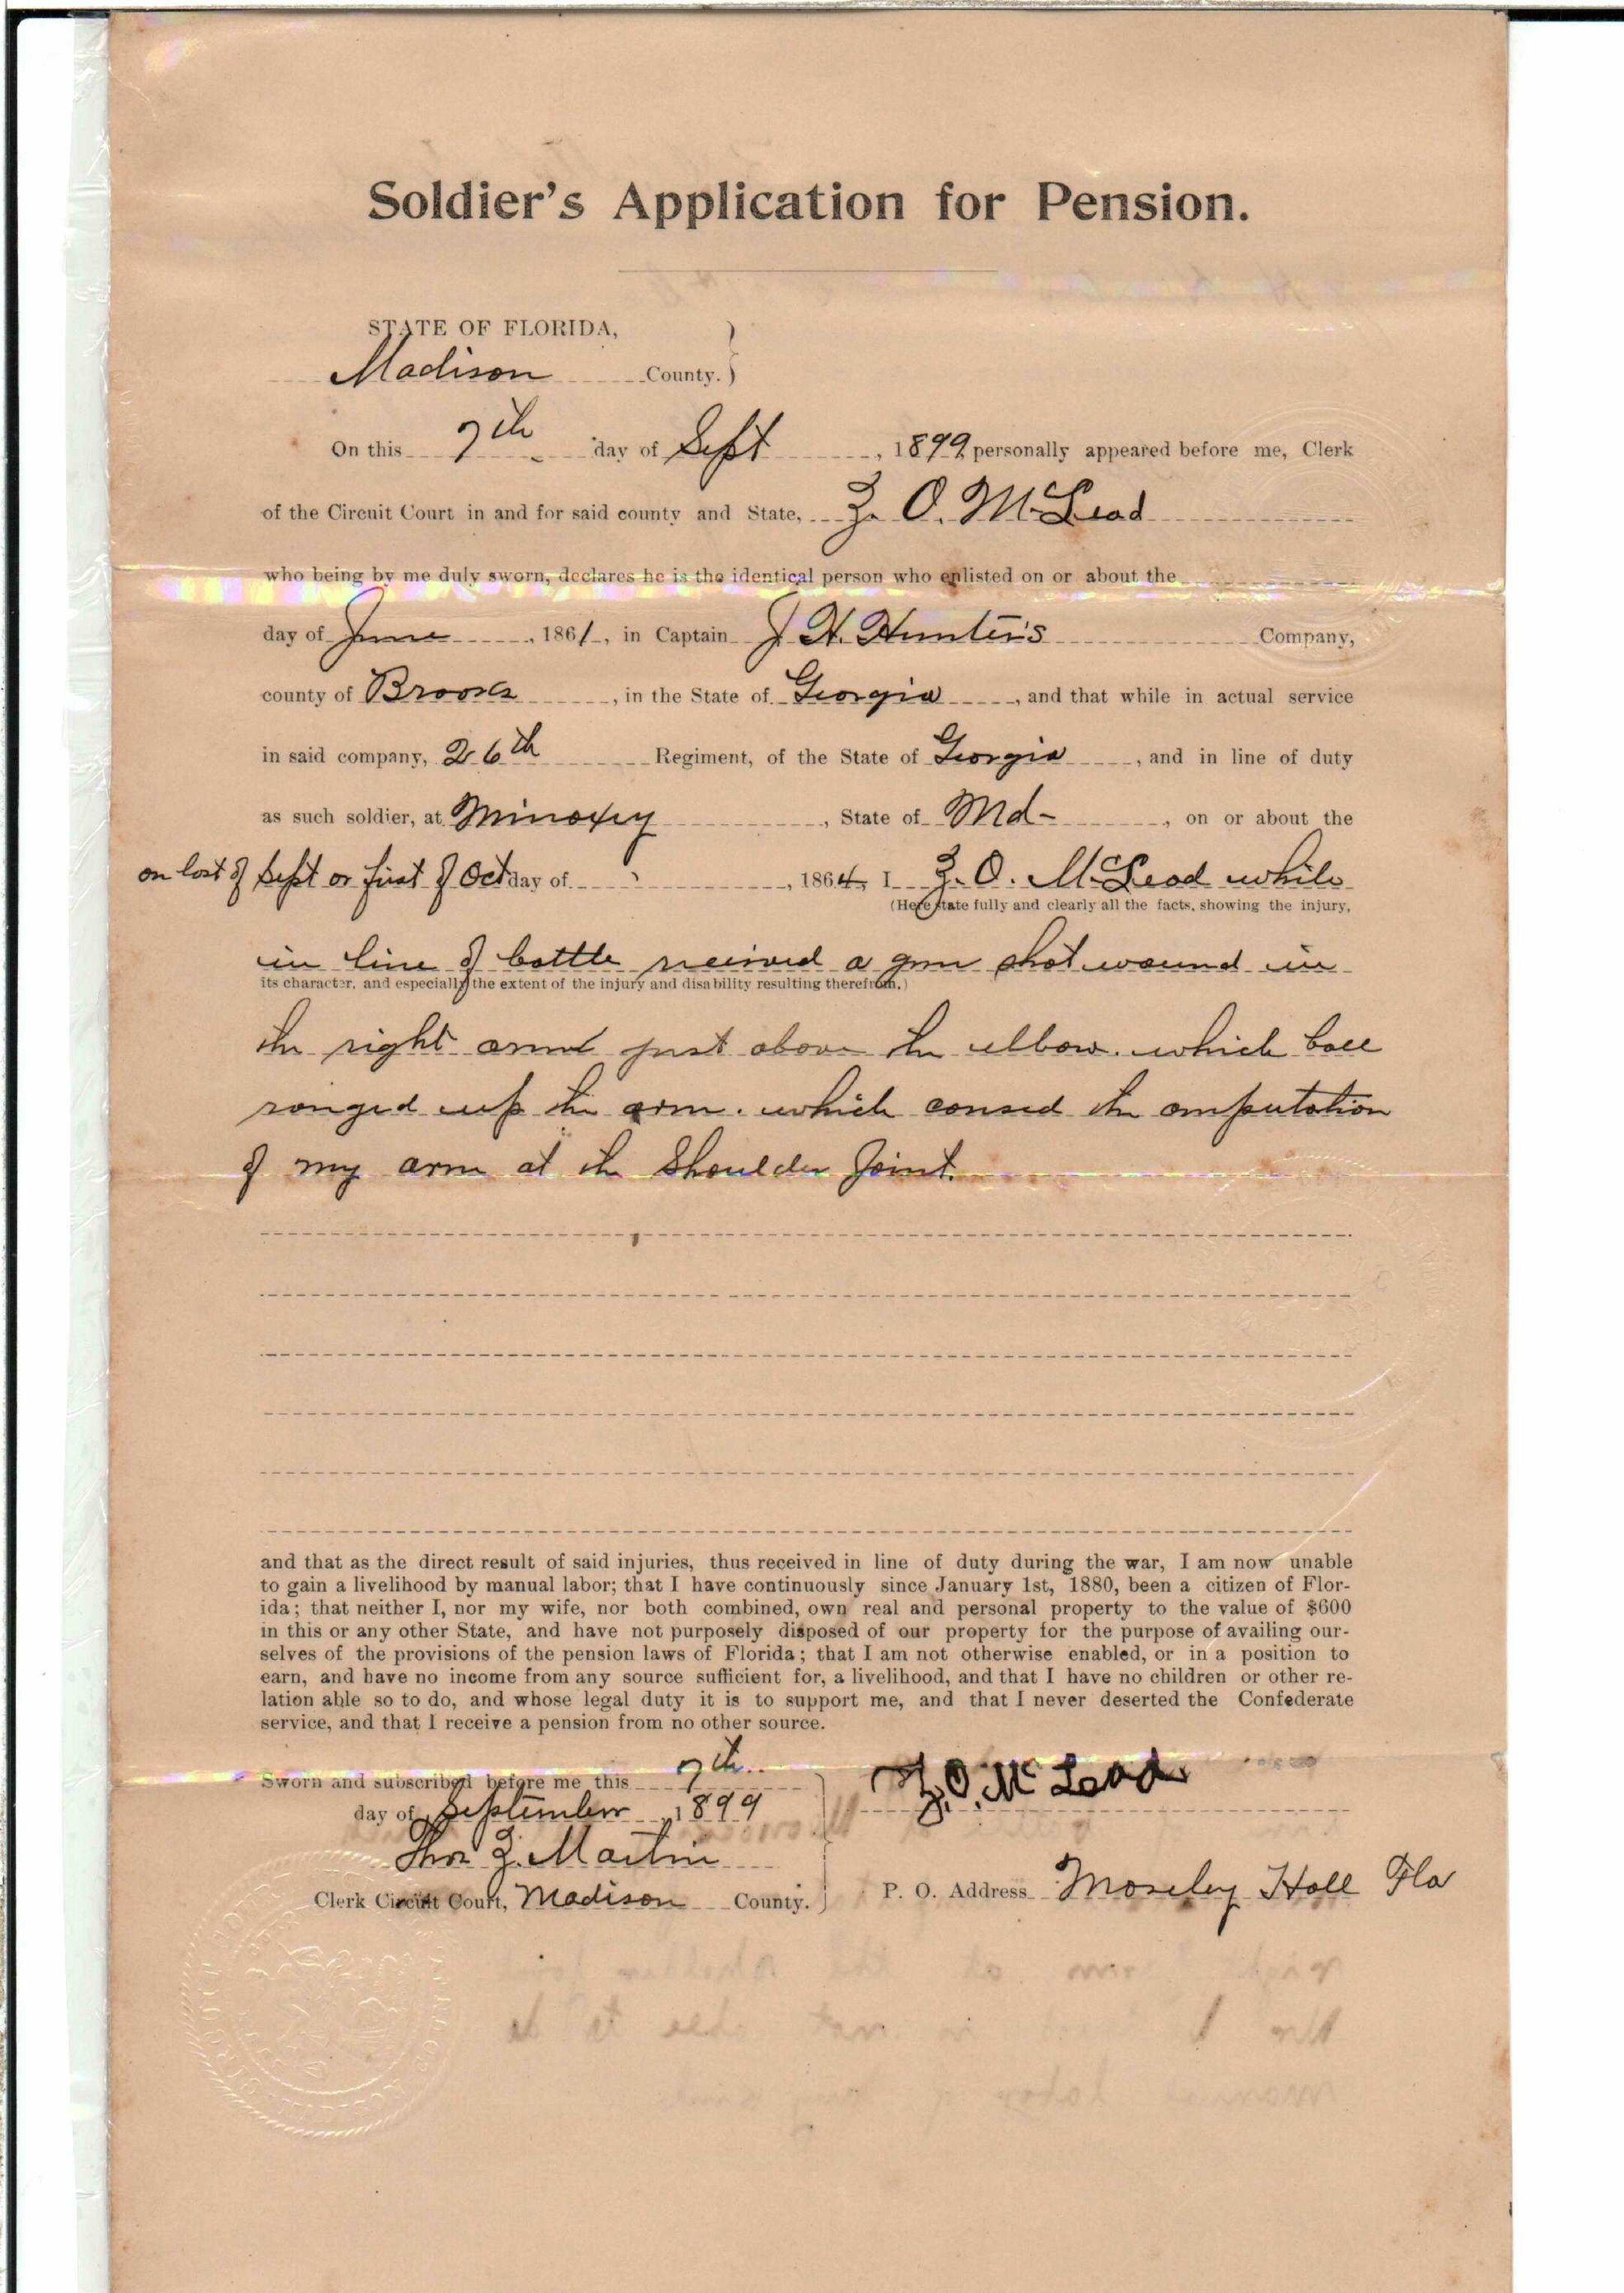 Soldier's Application for Pension.
STATE OF FLORIDA,
Madison County.
On this 7th day of Sept, 1899, personally appeared before me, Clerk
of the Circuit Court in and for said county and State, Z. O. McLead
who being by me duly sworn, declares he is the identical person who enlisted on or about the
day of June, 1861, in Captain J. H. Hunter's Company,
county of Brooks, in the State of Georgia, and that while in actual service
in said company, 26th Regiment, of the State of Georgia, and in line of duty
as such soldier, at , State of Md-, on or about the
on last of Sept or first of Oct day of , 1864, I Z. O. McLeod while
(Here state fully and clearly all the facts, showing the injury,
in line of battle received a gun shot wound in
its character, and especially the extent of the injury and disability resulting therefrom.)
the right arm just above the elbow. which ball
ranged up the arm. which caused the amputation
of my arm at the Shoulder Joint.
and that as the direct result of said injuries, thus received in line of duty during the war, I am now unable
to gain a livelihood by manual labor; that I have continuously since January 1st, 1880, been a citizen of Flor-
ida; that neither I, nor my wife, nor both combined, own real and personal property to the value of $600
in this or any other State, and have not purposely disposed of our property for the purpose of availing our-
selves of the provisions of the pension laws of Florida; that I am not otherwise enabled, or in a position to
earn, and have no income from any source sufficient for, a livelihood, and that I have no children or other re-
lation able so to do, and whose legal duty it is to support me, and that I never deserted the Confederate
service, and that I receive a pension from no other source.
Sworn and subscribed before me this 7th
day of September, 1899
Z. O. Mc Lead
Thos Z. Martin
Clerk Circuit Court, Madison County.
P. O. Address Moseley Hall Fla